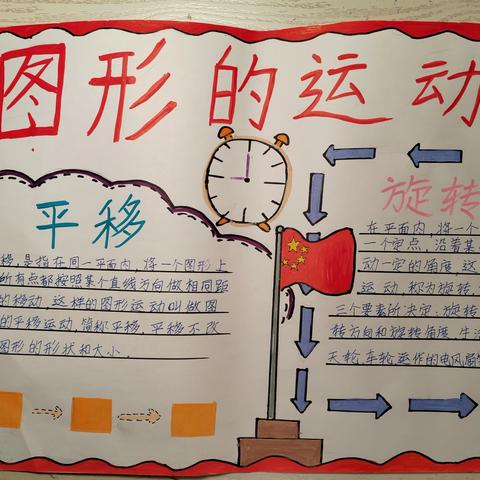 图形的运动
平移
移,是指在同一平面内,将一个图形上
所有点都按照某个直线方向做相同距
的移动,这样的图形运动叫做图
的平移运动,简称平移,平移不改
图形的形状和大小.
旋转
在平面内,将一个
一个定点,沿着某
动一定的角度,这
运动,称为旋转,
三个要素所决定:旋转
转方向和旋转角度.生活
天轮,车轮运作的电风扇